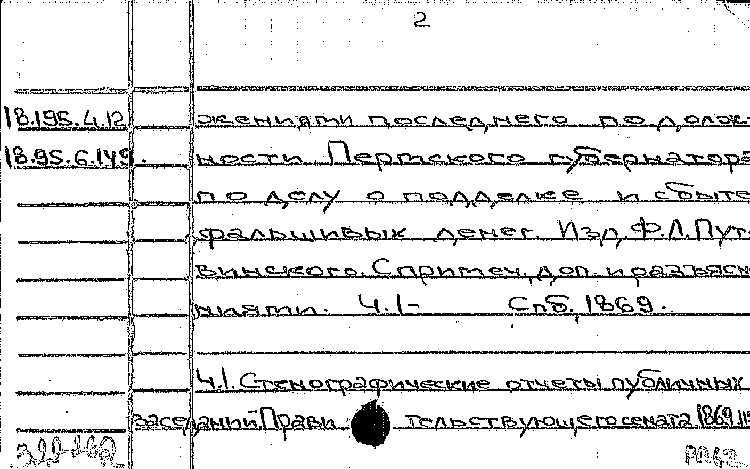 2
18.195.4.12 жениями последнего по долж-
18.95.6.149. ности Пермского губернатора
по делу о подделке и сбыте
фальшивых денег. Изд. Ф.Л. Пут-
винского. С примеч., доп. и разъясн
ниями. Ч.1- Спб., 1869.
Ч.1. Стенографические отчеты публичных
заседаний Прави тельствующего сената 1869